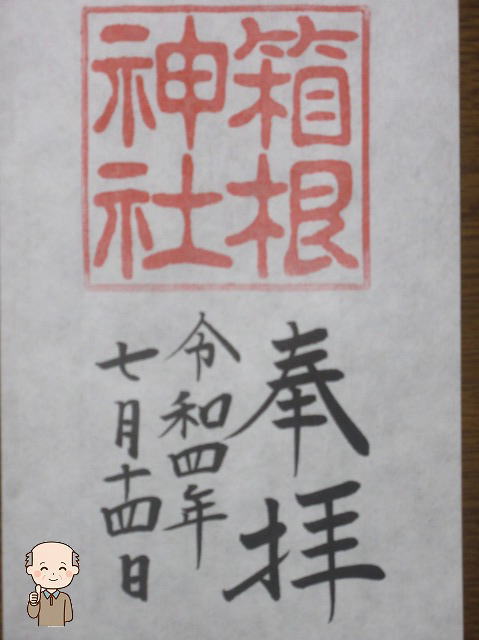 箱根
神社
奉拝
令和四年
七月十四日